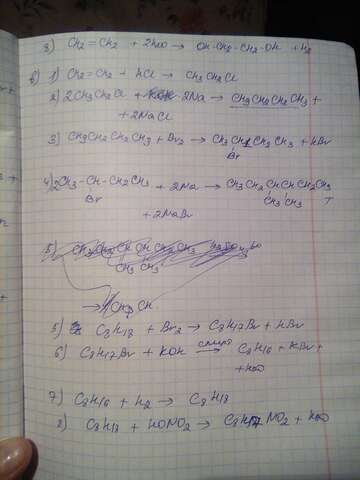 3) CH2=CH2 + 2H2O → OH-CH2-CH2-OH + H2
6) 1) CH2=CH2 + HCl → CH3CH2Cl
2) 2CH3CH2Cl + 2Na → CH3CH2CH2CH3 +
+ 2NaCl
3) CH3CH2CH2CH3 + Br2 → CH3CHCH2CH3 + HBr
Br
4) 2CH3-CH-CH2CH3 + 2Na → CH3CH2CHCHCH2CH3
Br CH3CH3
+ 2NaBr
5)
CH3 CH3
→ CH3 CH
5) C8H18 + Br2 → C8H17Br + HBr
6) C8H17Br + KOH спирт→ C8H16 + KBr +
+ H2O
7) C8H16 + H2 → C8H18
8) C8H18 + HONO2 → C8H17NO2 + H2O